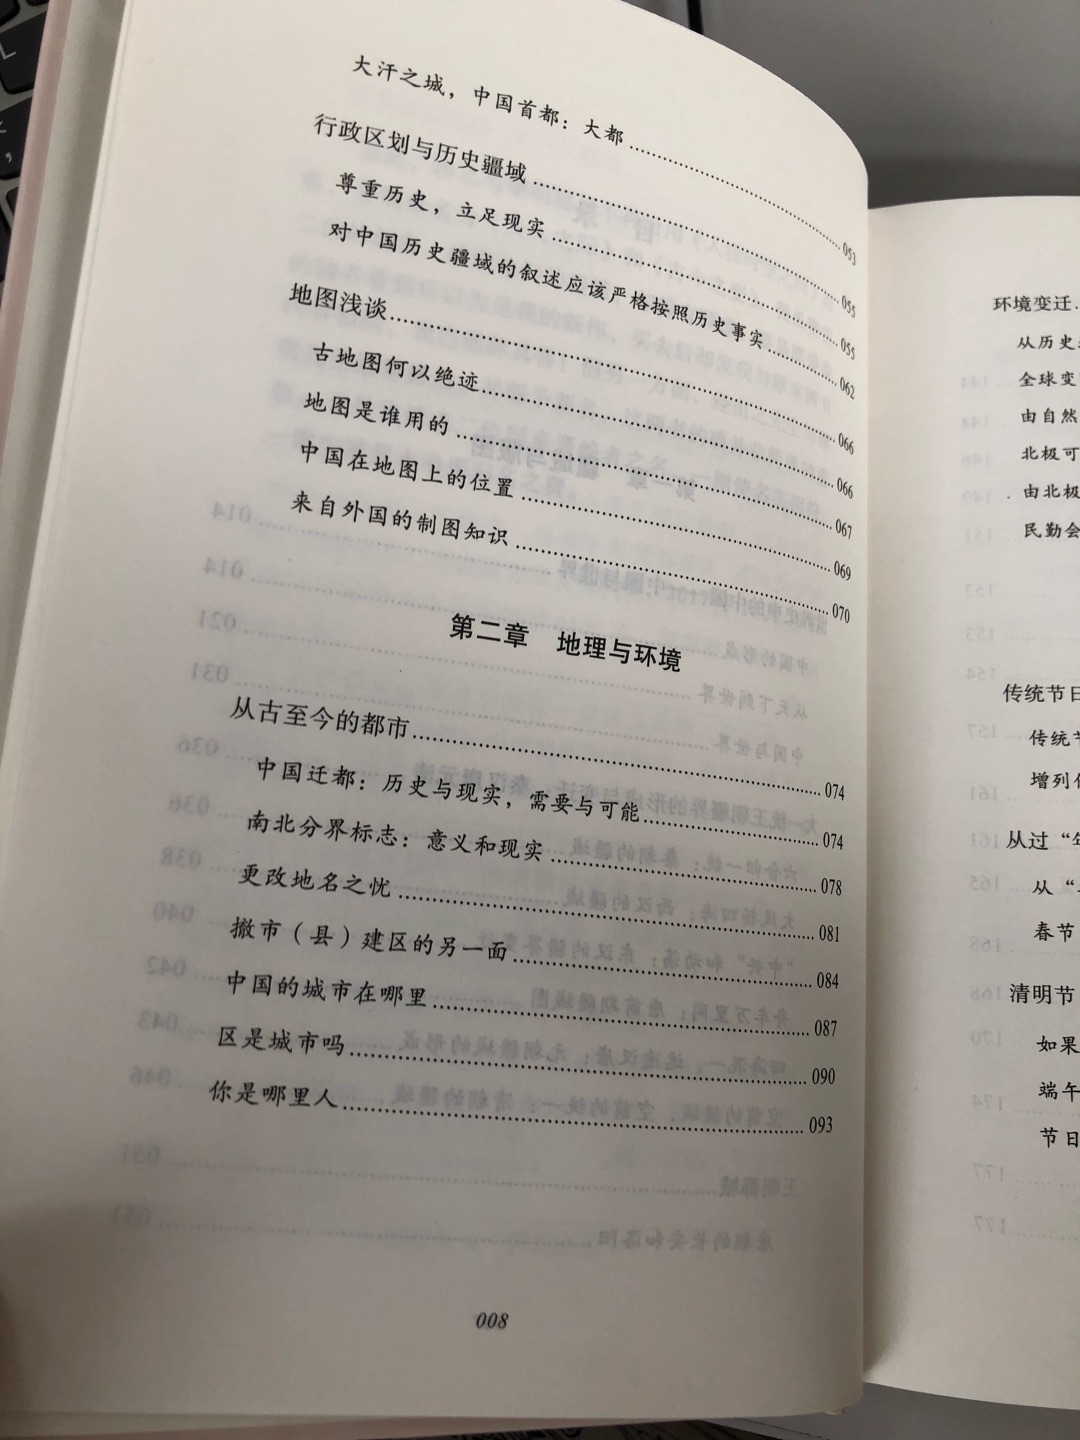 大汗之城，中国首都：大都……053
行政区划与历史疆域……055
尊重历史，立足现实……055
对中国历史疆域的叙述应该严格按照历史事实……062
地图浅谈……066
古地图何以绝迹……066
地图是谁用的……067
中国在地图上的位置……069
来自外国的制图知识……070
第二章 地理与环境
从古至今的都市……074
中国迁都：历史与现实，需要与可能……074
南北分界标志：意义和现实……078
更改地名之忧……081
撤市（县）建区的另一面……084
中国的城市在哪里……087
区是城市吗……090
你是哪里人……093
008
环境变迁
从历史
全球变
由自然
北极可
由北极
民勤会
传统节日
传统节
增列
从过“年
从“
春节
清明节
如果
端午
节日